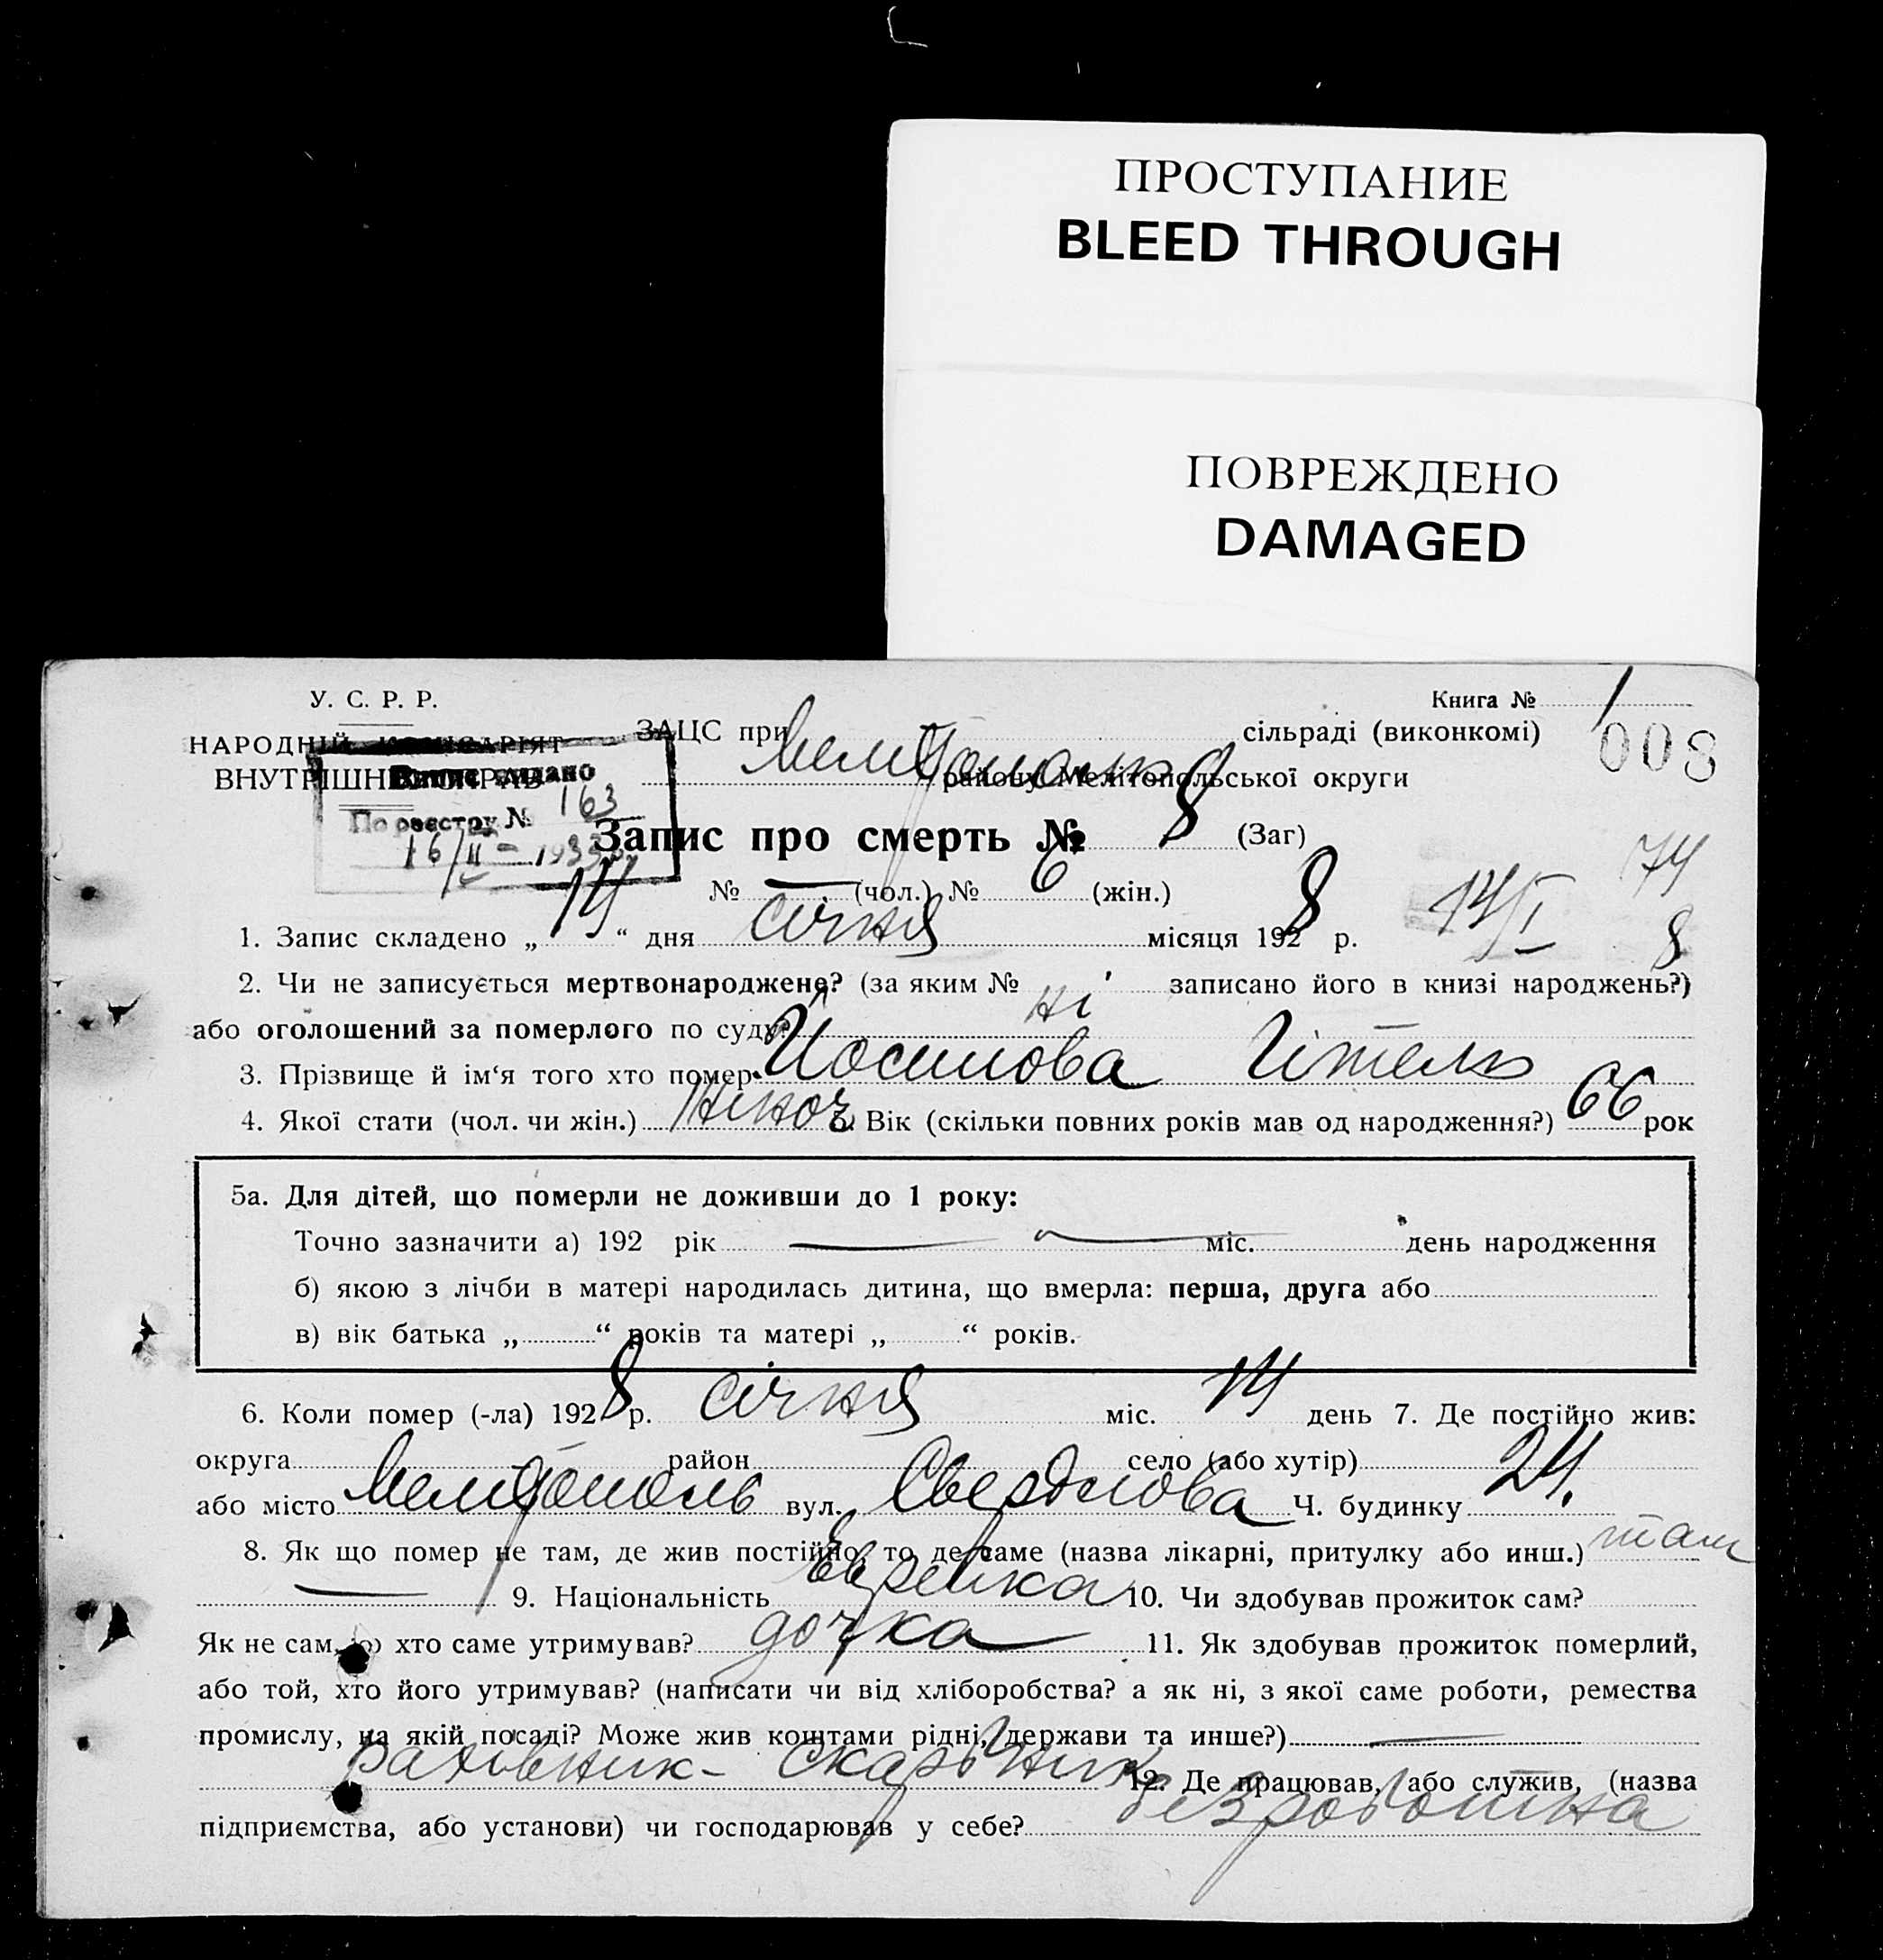 ПРОСТУПАНИЕ
BLEED THROUGH
ПОВРЕЖДЕНО
DAMAGED
У. С. Р. Р.
Книга № 1
НАРОДНІЙ КОМІСАРІЯТ
ВНУТРІШНІХ СПРАВ
ЗАЦС при сільраді (виконкомі)
008
району Мелітопольської округи
Витяг видано
По реєстру № 163
16/II - 1933 р.
Запис про смерть № 8 (Заг)
74
№ — (чол.) № 6 (жін.)
1. Запис складено „ 14 “ дня січня місяця 1928 р. 14/I 8
2. Чи не записується мертвонароджене? (за яким № ні записано його в книзі народжень?)
або оголошений за померлого по суду?
3. Прізвище й ім‘я того хто помер Йосипова Гітель
4. Якої стати (чол. чи жін.) жіноч 5. Вік (скільки повних років мав од народження?) 66 рок
5а. Для дітей, що померли не доживши до 1 року:
Точно зазначити а) 192 рік — міс. день народження
б) якою з лічби в матері народилась дитина, що вмерла: перша, друга або
в) вік батька „ “ років та матері „ “ років.
6. Коли помер (-ла) 1928 р. січня міс. 14 день 7. Де постійно жив:
округа район село (або хутір)
або місто Мелітополь вул. Свердлова Ч. будинку 24.
8. Як що помер не там, де жив постійно, то де саме (назва лікарні, притулку або инш.) там
— 9. Національність Еврейка 10. Чи здобував прожиток сам?
Як не сам, то хто саме утримував? дочка 11. Як здобував прожиток померлий,
або той, хто його утримував? (написати чи від хліборобства? а як ні, з якої саме роботи, ремества
промислу, на якій посаді? Може жив коштами рідні, держави та инше?) —
12. Де працював, або служив, (назва
підприємства, або установи) чи господарював у себе? безроботна